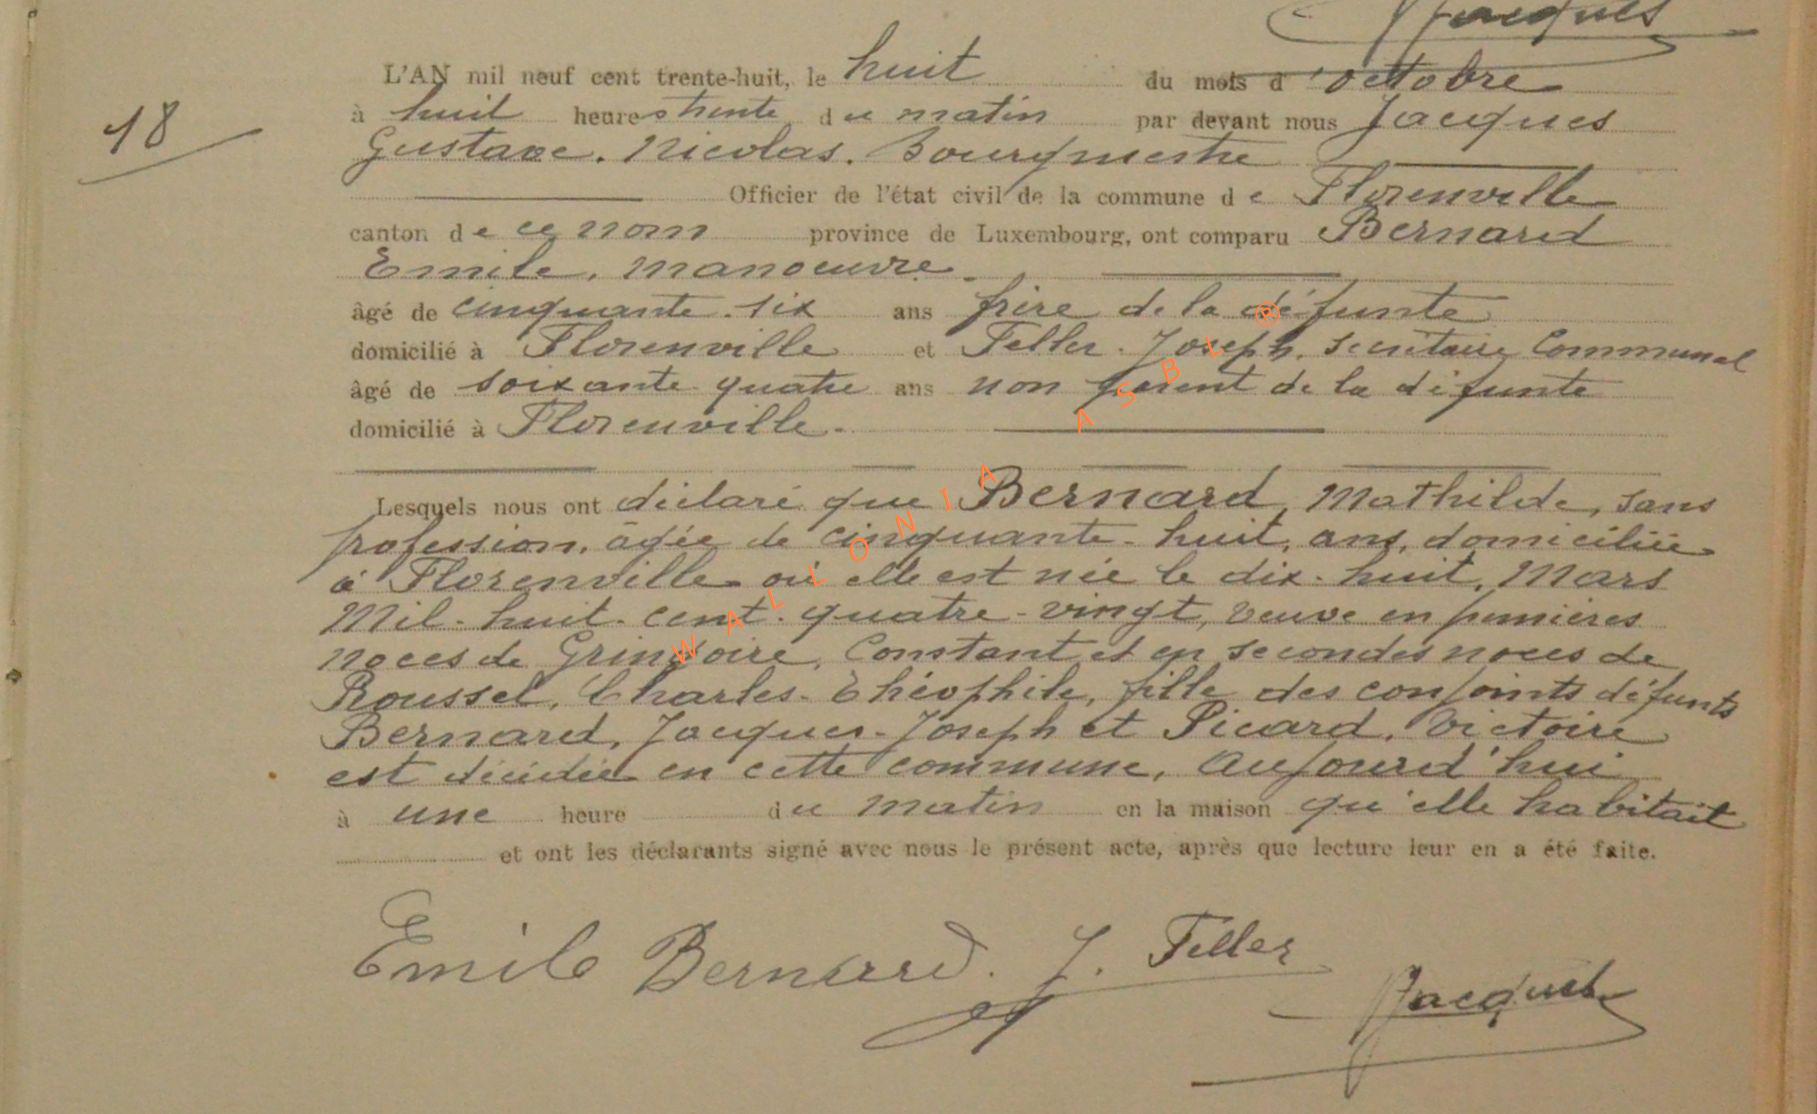 Jacques
L'AN mil neuf cent trente-huit, le huit du mois d'octobre
18
à huit heures trente du matin par devant nous Jacques
Gustave. Nicolas. Bourgmestre
Officier de l'état civil de la commune de Florenville
canton de ce nom province de Luxembourg, ont comparu Bernard
Emile, manoeuvre
âgé de cinquante-six ans frère de la défunte
domicilié à Florenville et Feller. Joseph. Secrétaire Communal
âgé de soixante quatre ans non parent de la défunte
domicilié à Florenville.
Lesquels nous ont déclaré que Bernard, Mathilde, sans
profession, âgée de cinquante-huit, ans, domiciliée
à Florenville où elle est née le dix-huit, Mars
Mil-huit-cent-quatre-vingt, veuve en premières
noces de Gringoire, Constant et en secondes noces de
Roussel, Charles-Théophile, fille des conjoints défunts
Bernard, Jacques-Joseph et Picard, Victoire
est décédée en cette commune, aujourd'hui
à une heure du matin en la maison qu'elle habitait
et ont les déclarants signé avec nous le présent acte, après que lecture leur en a été faite.
Emile Bernard. J. Feller
Jacques
WALLONIA ASBL ®